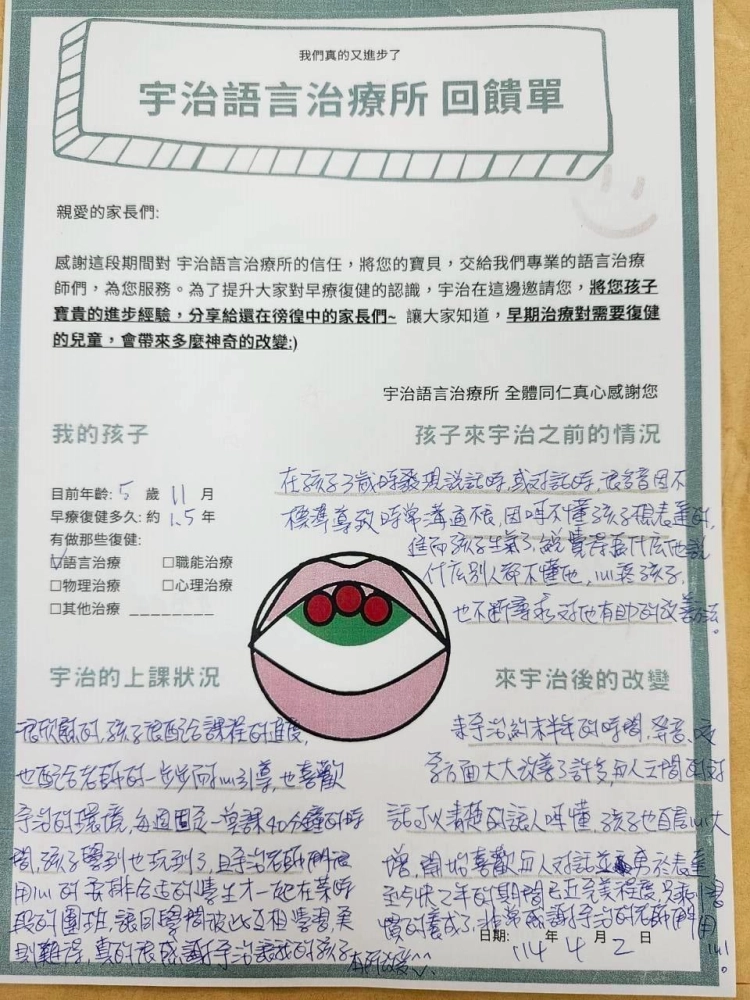 我們真的又進步了
宇治語言治療所 回饋單
親愛的家長們:
感謝這段期間對 宇治語言治療所的信任，將您的寶貝，交給我們專業的語言治療
師們，為您服務。為了提升大家對早療復健的認識，宇治在這邊邀請您，將您孩子
寶貴的進步經驗，分享給還在徬徨中的家長們~ 讓大家知道，早期治療對需要復健
的兒童，會帶來多麼神奇的改變:)
宇治語言治療所 全體同仁真心感謝您
我的孩子
目前年齡: 5 歲 11 月
早療復健多久: 約 1.5 年
有做那些復健:
☑語言治療 □職能治療
□物理治療 □心理治療
□其他治療 ________
孩子來宇治之前的情況
在孩子3歲時發現說話時,或對話時,很多音因不
標準導致時常溝通不良,因呼不懂孩子想表達的,
進而孩子生氣了,說覺得為什麼他說
什麼別人都不懂他,心疼孩子,
也不斷尋求對他有助的改善法。
宇治的上課狀況
很欣慰的,孩子很配合課程的進度,
也配合老師的一步步耐心引導,也喜歡
宇治的環境,每週固定一堂課40分鐘的時
間,孩子學到也玩到了,且宇治老師們很
用心的安排合適的學生才一起在某時
段的團班,讓同學間彼此互相學習,真
則難得,真的很感謝宇治讓我的孩子
來宇治後的改變
來宇治約末半年的時間,發音、咬
字方面大大改善了許多,與人之間的對
話可以清楚的讓人呼懂,孩子也自信心大
增,開始喜歡與人對話並勇於表達
至今快2年的期間已近完美程度,只剩習
慣的養成了,非常感謝宇治的老師們用
心!。
日期: 114 年 4 月 2 日